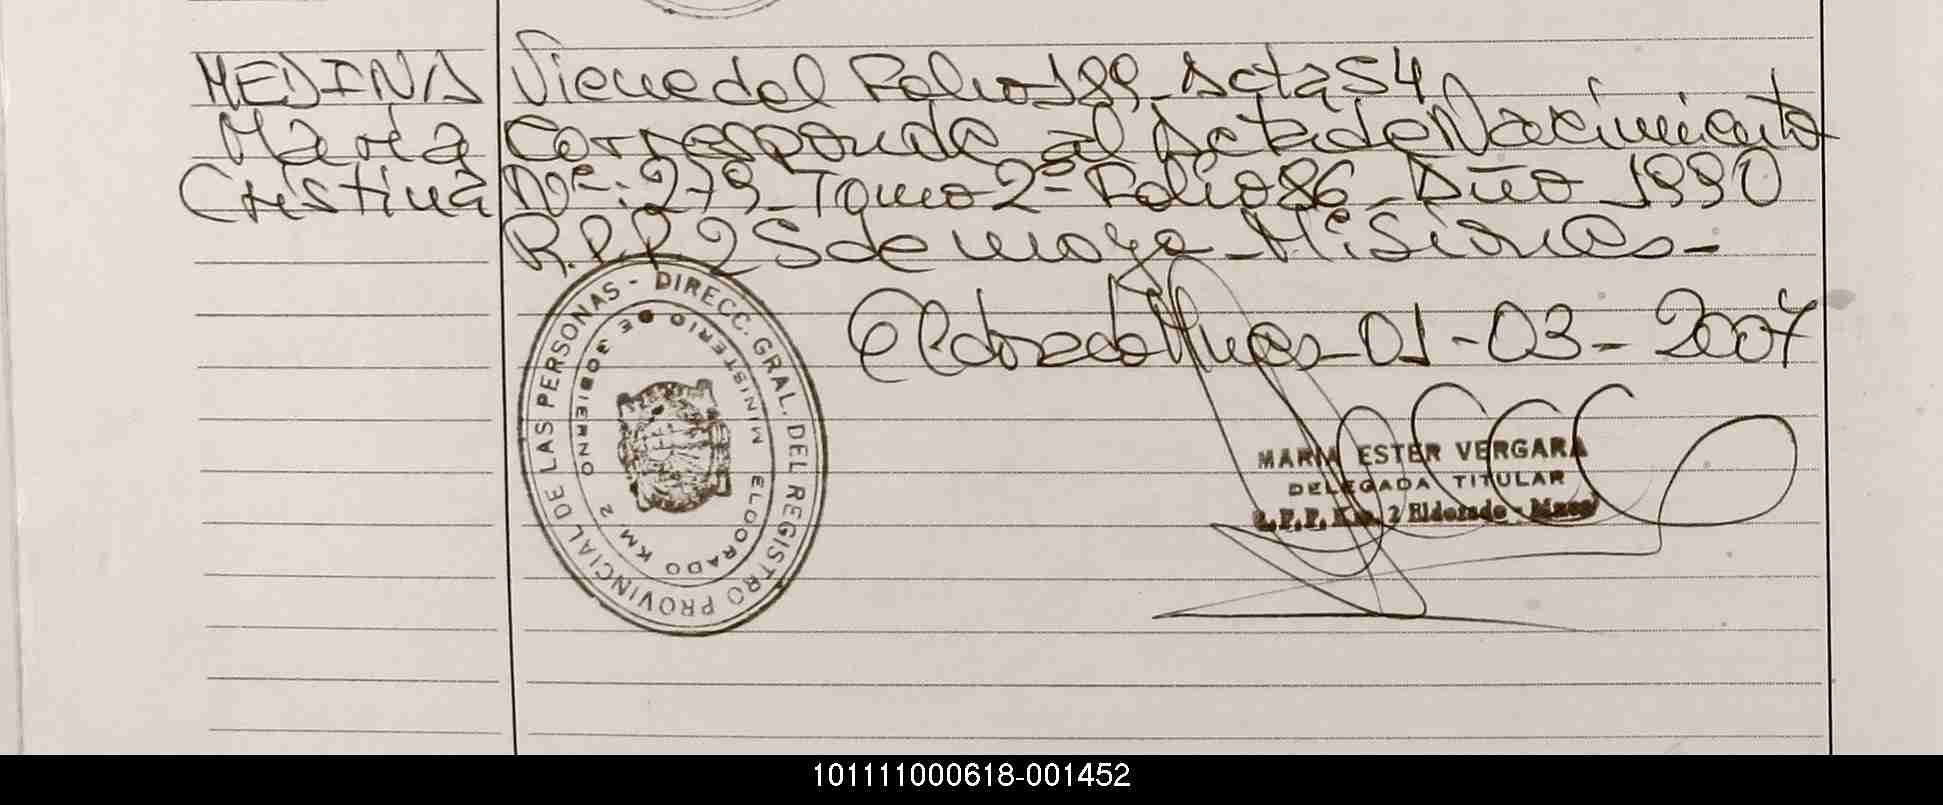 MEDINA
María
Cristina
Viene del Folio 189 - Acta 54
Corresponde al Acta de Nacimiento
Nº: 279 - Tomo 2º - Folio 86 - Año 1990
R.P.P. 25 de mayo - Misiones -
Eldorado Mnes - 01 - 03 - 2007
DIRECC. GRAL. DEL REGISTRO PROVINCIAL DE LAS PERSONAS -
MINISTERIO DE GOBIERNO
ELDORADO KM 2
MARIA ESTER VERGARA
DELEGADA TITULAR
R.P.P. Km. 2 Eldorado - Mnes
101111000618-001452